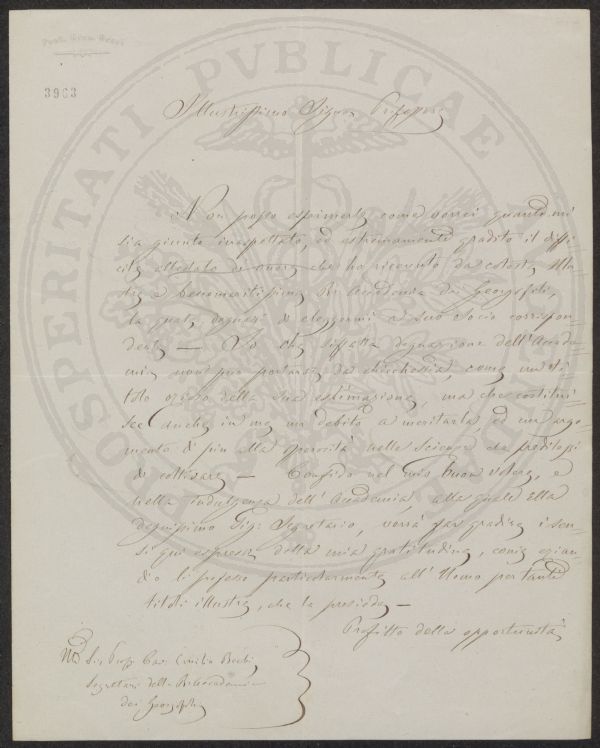 3963
Illustrissimo Signor Professore
Non posso esprimerle come vorrei quanto mi
sia giunto inaspettato, ed estremamente gradito il
che ho ricevuto da cotesta
e benemeritissima R. Accademia dei Georgofili,
la quale degnossi di eleggermi a suo socio corrispon=
dente — So che siffatta degnazione dell'Accade=
mia non può portarsi da chicchessia come un ti=
tolo ozioso della sua estimazione, ma che costitui=
sce anche in me un debito a meritarla, ed un argo=
mento di più alla operosità nelle Scienze da
di coltivare — Confido nel mio buon volere, e
nella indulgenza dell'Accademia, alla quale Ella
degnissimo Sig: Segretario, vorrà far gradire i sen=
si qui espressi della mia gratitudine, come ezian=
dio li professo particolarmente all'Uomo per tanti
titoli illustre, che la presiede —
Profitto della opportunità
Sig. Prof. Cav. Emilio Bechi
Segretario della R. Accademia
dei Georgofili
PROSPERITATI PVBLICAE